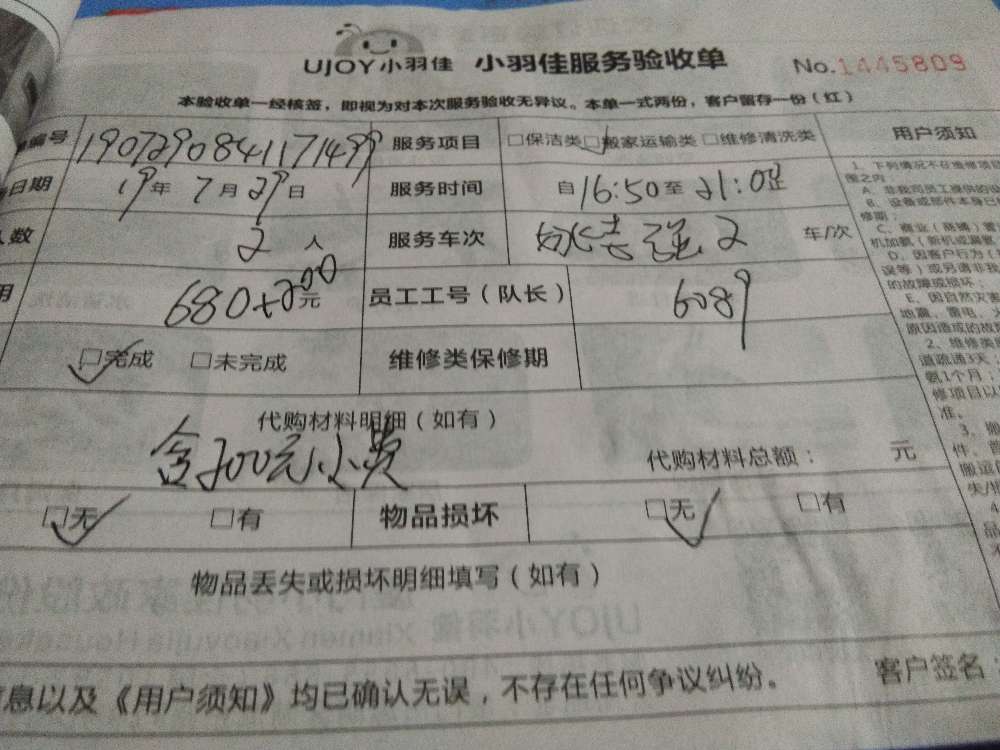 UJOY小羽佳 小羽佳服务验收单 No.1445809
本验收单一经核签，即视为对本次服务验收无异议。本单一式两份，客户留存一份（红）
编号 1907290841171499 服务项目 □保洁类 □搬家运输类 □维修清洗类 用户须知
日期 19年7月29日 服务时间 自16:50至21:02
人数 2人 服务车次 2 车/次
680+200元 员工工号（队长） 6089
□完成 □未完成 维修类保修期
代购材料明细（如有）
含200元小费 代购材料总额： 元
□无 □有 物品损坏 □无 □有
物品丢失或损坏明细填写（如有）
息以及《用户须知》均已确认无误，不存在任何争议纠纷。 客户签名：
1、下列情况不在维修项目
围之内：
A、非我司员工提供的
B、设备或部件本身已
修期；
C、
机加氨（新机或漏氨
D、因客户行为（
误等）或另请非我
的故障或损坏；
E、因自然灾害
地震、雷电、
原因造成的故
2、维修类
道疏通3天、
氨1个月；
修项目以
准。
3、搬
件、
搬运
失/
4
品